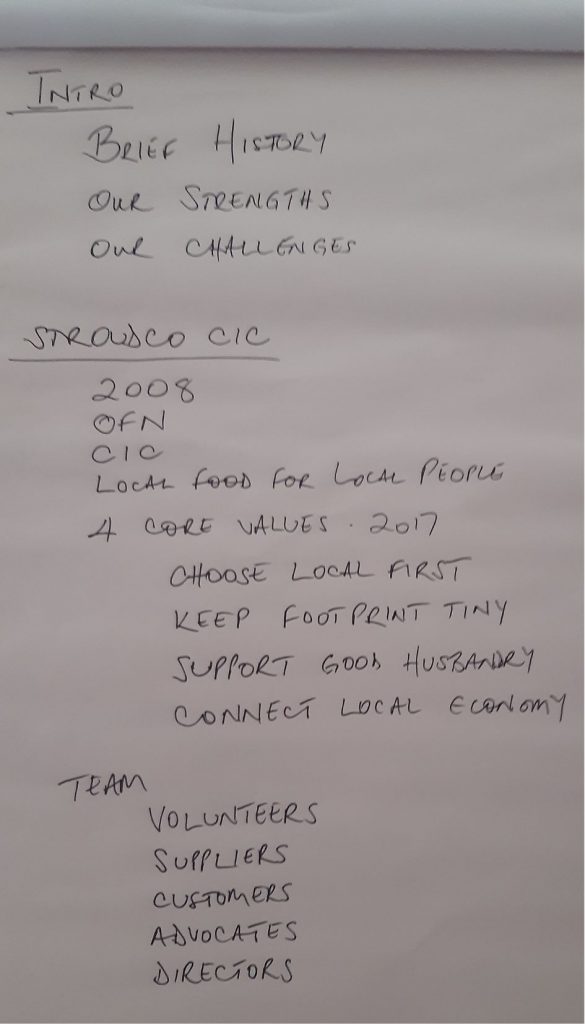 INTRO
BRIEF HISTORY
OUR STRENGTHS
OUR CHALLENGES
STROUDCO CIC
2008
OFN
CIC
LOCAL FOOD FOR LOCAL PEOPLE
4 CORE VALUES · 2017
CHOOSE LOCAL FIRST
KEEP FOOTPRINT TINY
SUPPORT GOOD HUSBANDRY
CONNECT LOCAL ECONOMY
TEAM
VOLUNTEERS
SUPPLIERS
CUSTOMERS
ADVOCATES
DIRECTORS